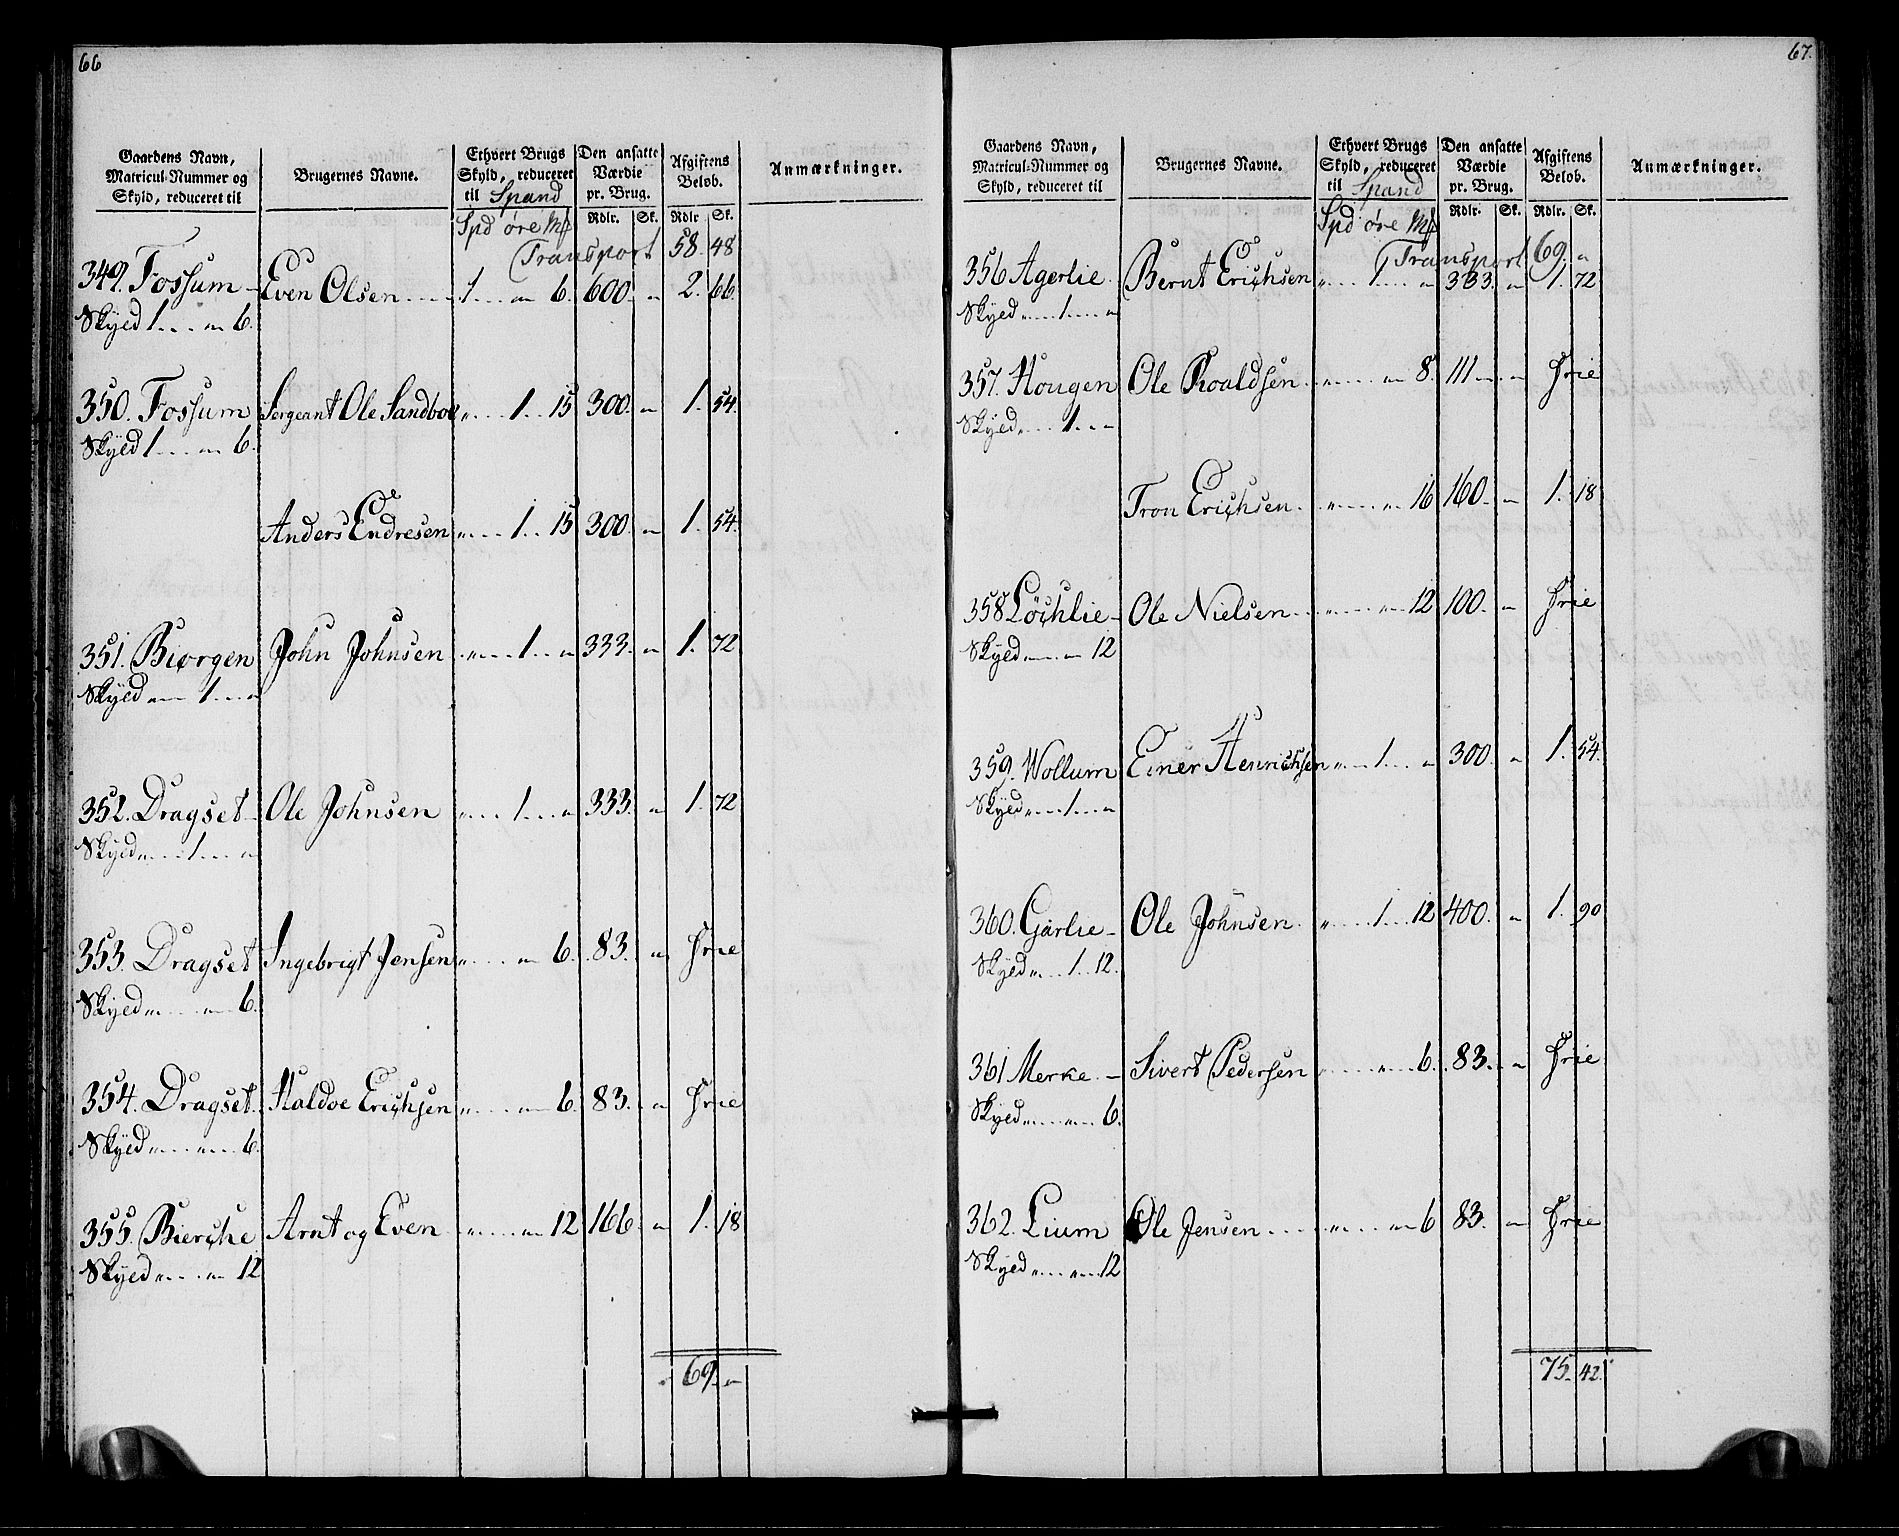 66
Gaardens Navn, Matricul-Nummer og Skyld, reduceret til
Brugernes Navne.
Ethvert Brugs Skyld, reduceret til Spand
Den ansatte Værdie pr. Brug.
Afgiftens Beløb.
Anmærkninger.
Rdlr. Sk. Rdlr. Sk.
Spd øre Mk
Transport 58. 48
349. Fossum Even Olsen 1 " 6. 600. " 2. 66.
Skyld 1 " 6.
350. Fossum Sergeant Ole Sandboe " 1 15 300. " 1. 54.
Skyld 1 " 6.
Anders Endresen " 1 15 300. " 1. 54.
351. Biørgen John Johnsen " 1 " 333. " 1. 72
Skyld " 1 "
352. Dragset Ole Johnsen " 1 " 333. " 1. 72
Skyld " 1 "
353. Dragset Ingebrigt Jensen " " 6. 83. " frie
Skyld " " 6.
354. Dragset Haldoe Erichsen " " 6. 83. " frie
Skyld " " 6.
355. Bierche Arnt og Even " " 12 166. " 1. 18
Skyld " " 12
69. "
67.
Gaardens Navn, Matricul-Nummer og Skyld, reduceret til
Brugernes Navne.
Ethvert Brugs Skyld, reduceret til Spand
Den ansatte Værdie pr. Brug.
Afgiftens Beløb.
Anmærkninger.
Rdlr. Sk. Rdlr. Sk.
Spd øre Mk
Transport 69. "
356 Agerlie Bernt Erichsen " 1 " 333. " 1. 72
Skyld " 1 "
357. Hougen Ole Roaldsen " " 8. 111 " frie
Skyld " 1 "
Tron Erichsen " " 16 160. " 1. 18
358 Løchlie Ole Nielsen " " 12 100. " frie
Skyld " " 12
359. Wollum Einer Henrichsen " 1 " 300. " 1. 54.
Skyld " 1 "
360. Garlie Ole Johnsen " 1 12 400. " 1. 90
Skyld " 1 12.
361 Merke Sivert Pedersen " " 6. 83. " frie
Skyld " " 6.
362. Lium Ole Jensen " " 6 83. " frie
Skyld " " 12
75. 42.